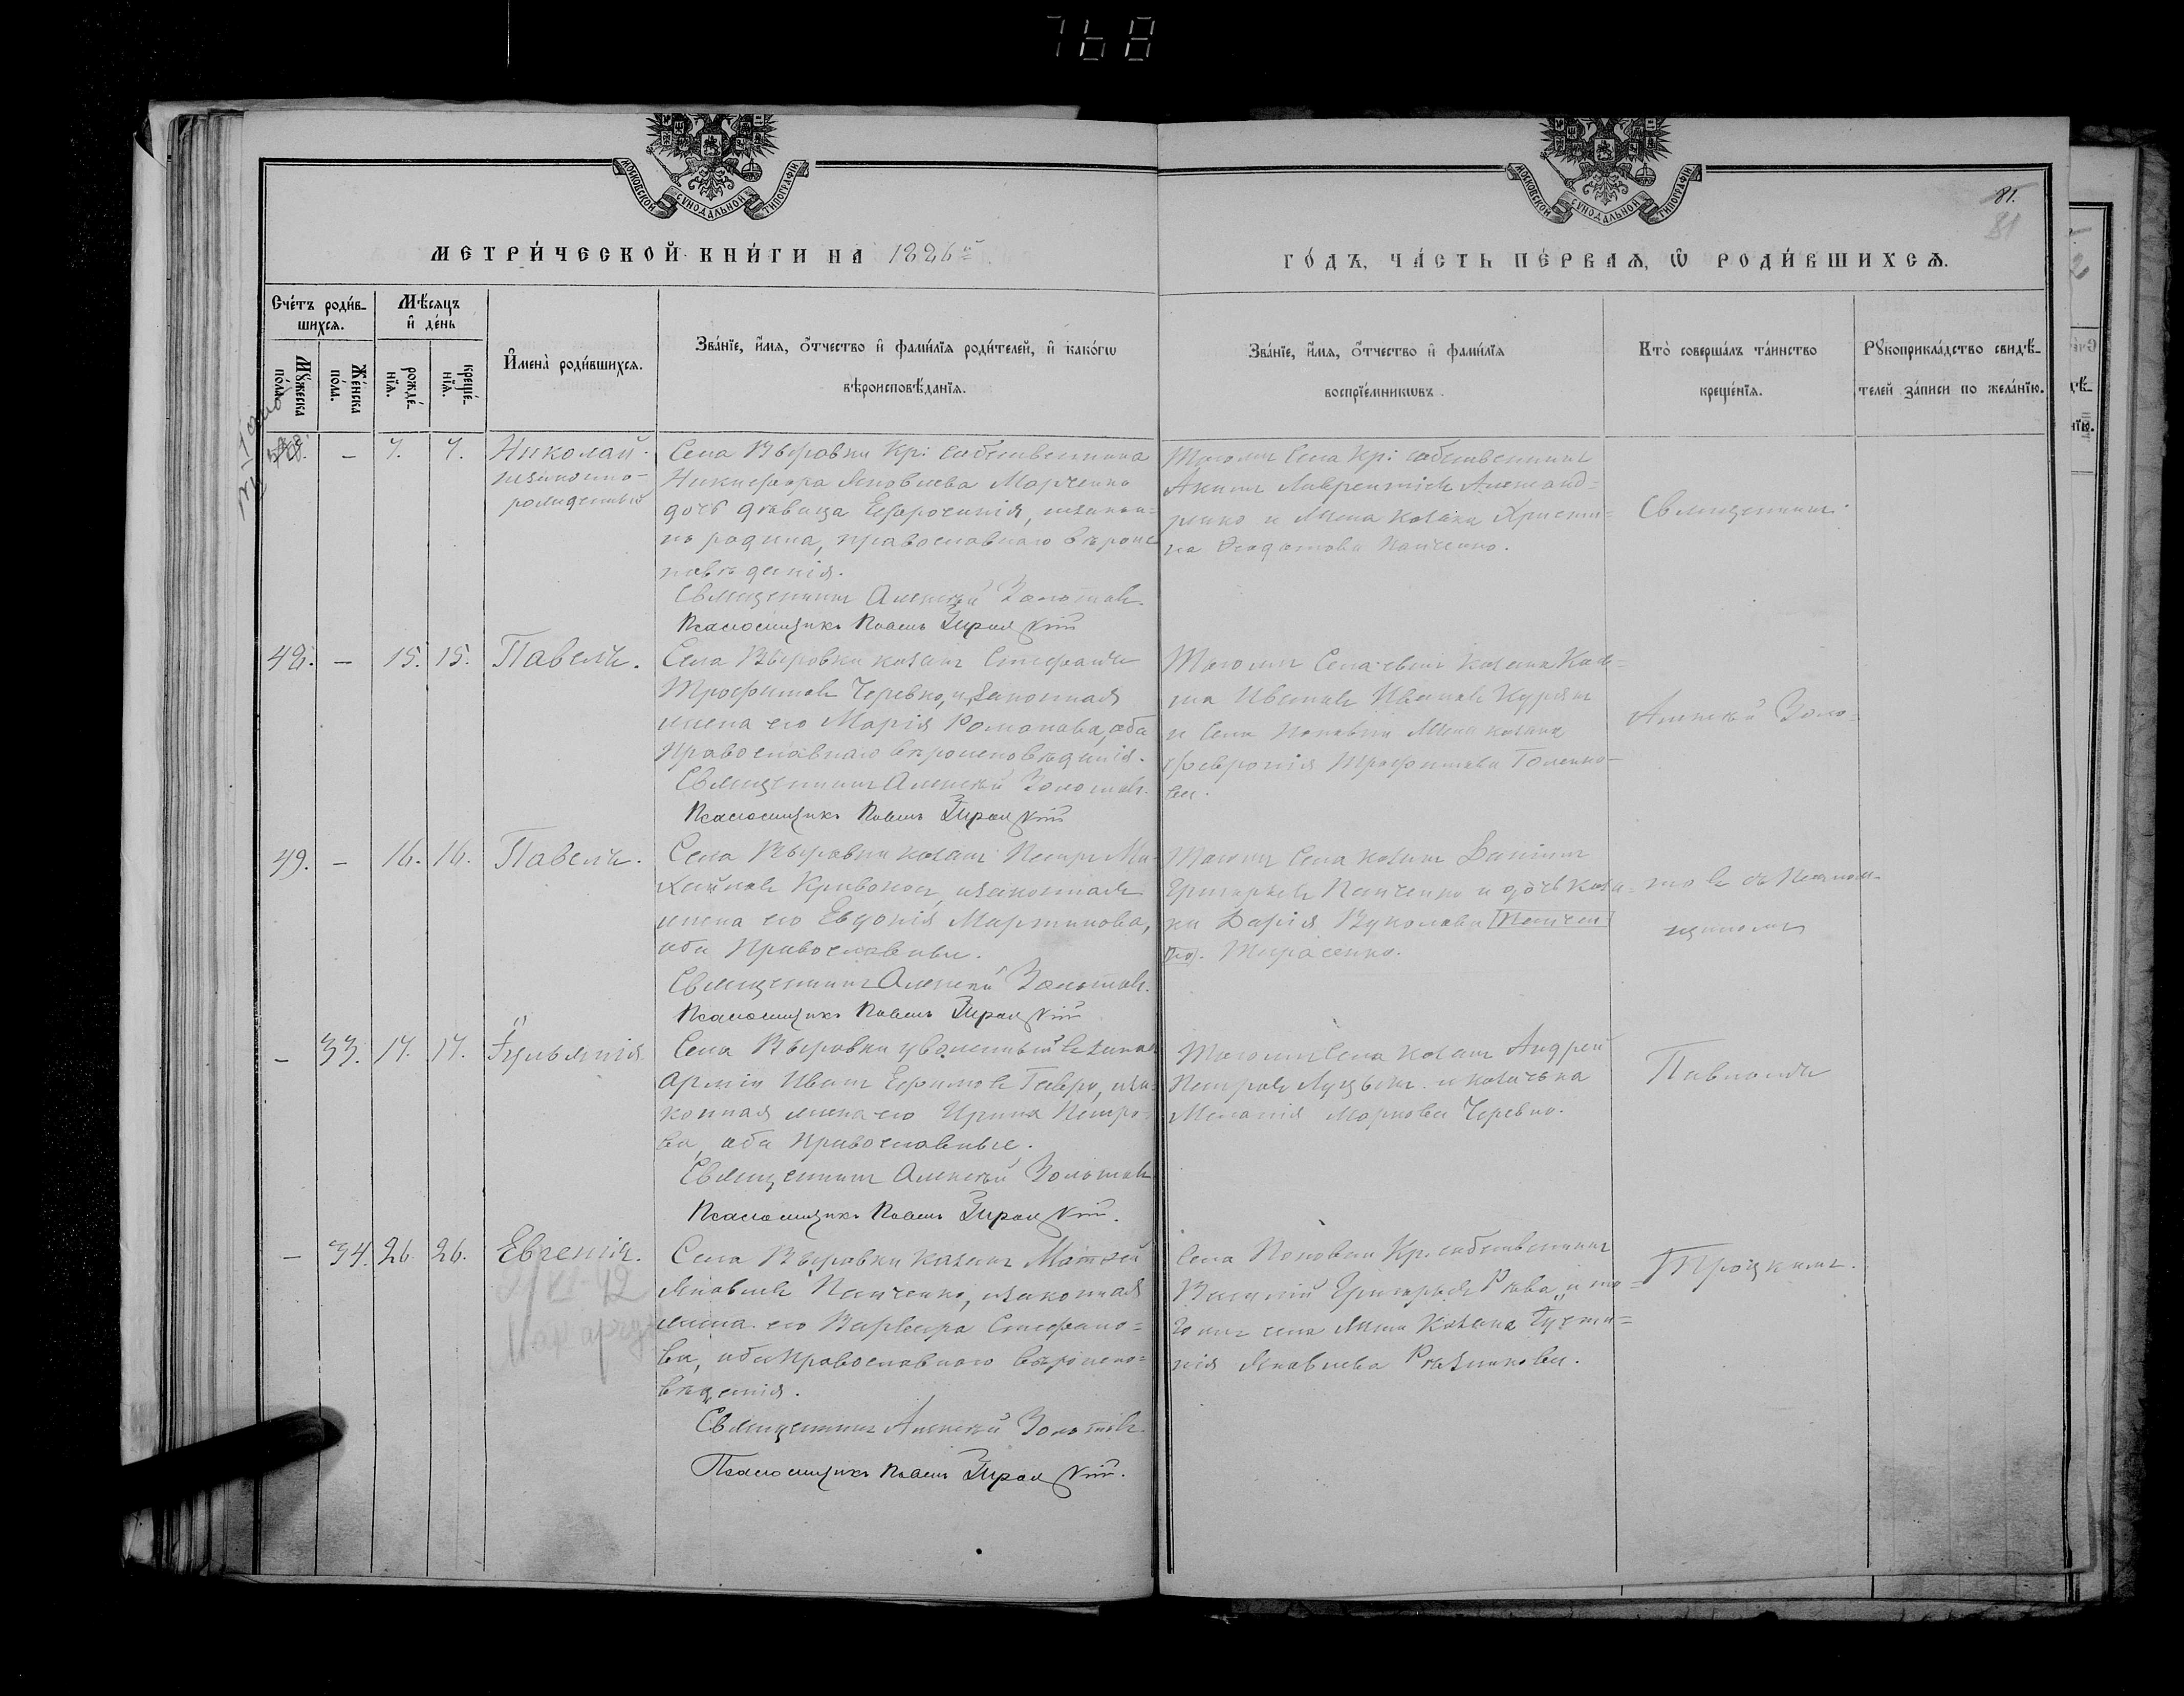 768
МОСКОВСКОЙ СѴНОДАЛЬНОЙ ТИПОГРАФІИ
МОСКОВСКОЙ СѴНОДАЛЬНОЙ ТИПОГРАФІИ
81.
81
МЕТРИ́ЧЕСКОЙ КНИ́ГИ НА 1886й
ГО́ДЪ, ЧА́СТЬ ПЕ́РВАѦ, Ѡ РОДИ́ВШИХСѦ.
Сче́тъ роди́в-
шихсѧ.
Мꙋ́жеска по́ла.
Же́нска по́ла.
Мѣ́сѧцъ
и҆ де́нь
рожде́-
нїѧ.
креще́-
нїѧ.
И҆мена̀ роди́вшихсѧ.
Зва́нїе, и҆́мѧ, ѻ҆́тчество и҆ фами́лїѧ роди́телей, и҆ како́гѡ
вѣроисповѣ́данїѧ.
Зва́нїе, и҆́мѧ, ѻ҆́тчество и҆ фами́лїѧ
воспрїе́мникѡвъ.
Кто̀ соверша́лъ та́инство
креще́нїѧ.
Рꙋкоприкла́дство свидѣ́-
телей за́писи по жела́нїю.
7. 7. Николай
незаконно-
рожденный
Села Выровки Кр: собственника
Никифора Яковлева Марченко
дочь девица Ефросинія, незакон-
но родила, православнаго вероис
поведенія.
Священникъ Алексѣй Золотовъ.
Псаломщикъ Павелъ Троицкій
Тогожъ Села Кр: собственникъ
Акимъ Лаврентіевъ Александ-
ренко и жена козака Христи-
на Панченко.
Священникъ
48. — 15. 15. Павелъ.
Села Выровки козакъ Стефанъ
Трофимовъ Черевко, и законная
жена его Марія Романова, оба
Православнаго вѣроисповѣданія.
Священникъ Алексѣй Золотовъ.
Псаломщикъ Павелъ Троицкій
Ивановъ
и Села Поповки жена козака
Феврония Трофимова Голенко-
ва.
Алексѣй Золо-
49. — 16. 16. Павелъ.
Села Выровки козакъ Петръ Ми-
хайловъ Кривоносъ, и законная
жена его Евдокія Мартинова,
оба Православные.
Священникъ Алексѣй Золотовъ.
Псаломщикъ Павелъ Троицкій
Тогожъ Села козакъ Даниилъ
Григорьевъ Панченко и дочь коза-
ка Дарія Вуколова [Панчен
ко]. Тарасенко.
товъ съ Псалом-
щикомъ
— 33. 17. 17. Іуліянія
Села Выровки уволенный въ запас
арміи Иванъ Ефимовъ и за-
конная жена его Ирина Петро-
ва, оба Православные.
Священникъ Алексѣй Золотовъ
Псаломщикъ Павелъ Троицкій.
Тогожъ Села козакъ Андрей
Петровъ Луцыкъ и козачка
Меланія Маркова Черевко.
Павломъ
— 34. 26. 26. Евгенія.
Села Выровки козакъ Матѳей
Яковлевъ Панченко, и законная
жена его Варвара Стефано-
ва, оба Православнаго вѣроиспо-
вѣданія.
Священникъ Алексѣй Золотовъ
Псаломщикъ Павелъ Троицкій.
Села Поповки Кр. собственникъ
Василій Григорьевъ и то-
гожъ села жена Козака
Яковлева
Троицкимъ.